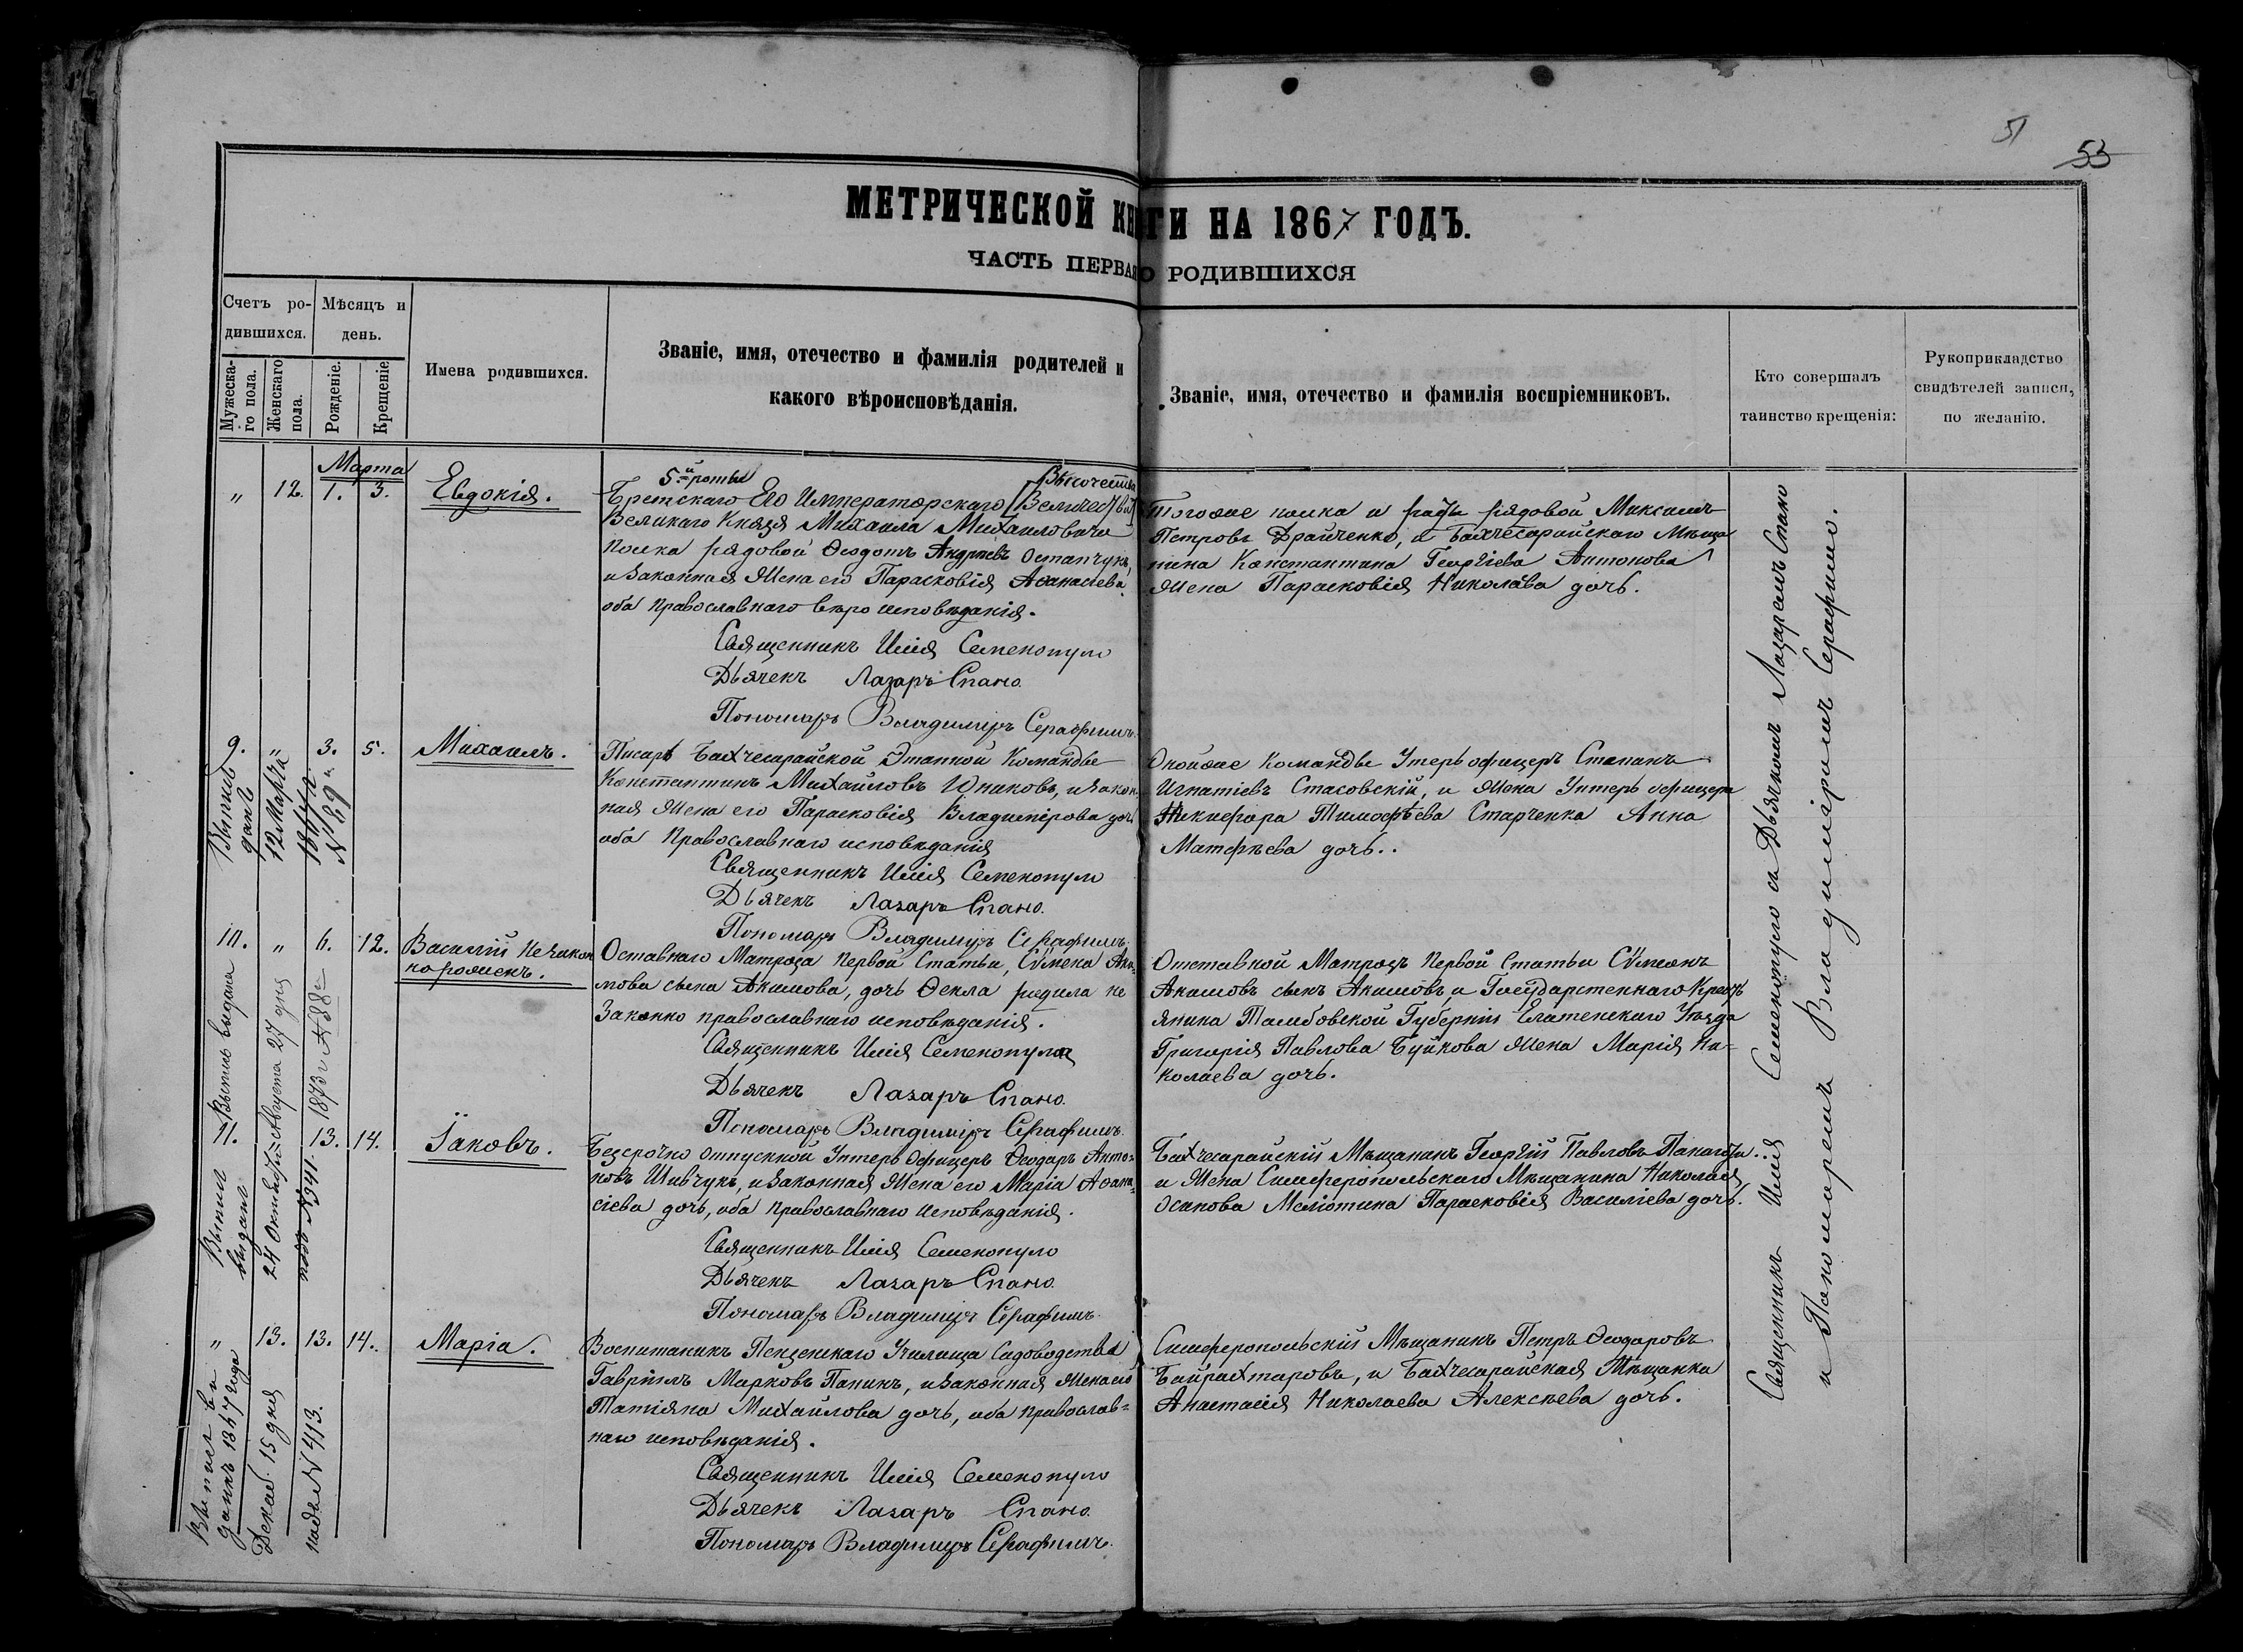 51
53
МЕТРИЧЕСКОЙ КНИГИ НА 1867 ГОДЪ.
ЧАСТЬ ПЕРВАЯ О РОДИВШИХСЯ
Счетъ ро-
дившихся.
Мужеска-
го пола.
Женскаго
пола.
Мѣсяцъ и
день.
Рожденіе.
Крещеніе
Имена родившихся.
Званіе, имя, отечество и фамилія родителей и
какого вѣроисповѣданія.
Званіе, имя, отечество и фамилія воспріемниковъ.
Кто совершалъ
таинство крещенія:
Рукоприкладство
свидѣтелей записи,
по желанію.
Марта
„ 12. 1. 3.
Евдокія.
5й роты
Высочества
Брестскаго Его Императорскаго [Величества]
Великаго Князя Михаила Михаиловича
полка рядовой Ѳеодотъ Андреевъ Остапчукъ,
и законная жена его Парасковія Аѳанасіева
оба православнаго вѣро исповѣданія.
Священникъ Илія Семенопуло
Дьячекъ Лазаръ Спано.
Пономаръ Владиміръ Серафимъ.
Тогоже полка и роты рядовой Максимъ
Петровъ Драйченко, и Бахчесарайскаго Мѣща
нина Константина Георгіева Антонова
жена Парасковія Николаева дочь.
9. „ 3. 5.
Михаилъ.
Выпись
данъ
12 Марта
1877 г.
№ 89
Писарь Бахчесарайской Этапной Команды
Константинъ Михайловъ Юниковъ, и закон
ная жена его Парасковія Владимірова дочь
оба Православнаго исповѣданія
Священникъ Илія Семенопуло
Дьячекъ Лазаръ Спано.
Пономаръ Владиміръ Серафимъ.
Онойже Команды Унтеръ офицеръ Степанъ
Игнатіевъ Стасовскій, и жена Унтеръ офицера
Никифора Тимофѣева Старченка Анна
Матфѣева дочь..
10. „ 6. 12.
Василій незакон
норожденъ.
Выпись выдана
Августа 27 дня
1873 г. № 88
Оставнаго Матроза Первой Статьи, Сѵмена Аки-
мова сына Акимова, дочь Ѳекла родила не
Законно православнаго исповѣданія.
Священникъ Илія Семенопуло
Дьячекъ Лазаръ Спано.
Пономаръ Владиміръ Серафимъ.
Отставной Матрозъ Первой Статьи Сѵмеонъ
Акимовъ сынъ Акимовъ, и Государственнаго Кресть
янина Тамбовской Губерніи Елатенскаго Уѣзда
Григорія Павлова Буйкова жена Марія Ни-
колаева дочь.
11. 13. 14.
Іаковъ.
Выпись
выданъ
24 Октября
подъ № 341.
Безсрочно отпускной Унтеръ Офицеръ Ѳеодаръ Анто-
новъ Шивчукъ, и законная жена его Марія Аѳана-
сіева дочь, оба православнаго исповѣданія.
Священникъ Илія Семенопуло
Дьячекъ Лазаръ Спано.
Пономаръ Владиміръ Серафимъ.
Бахчесарайскій Мѣщанинъ Георгій Павловъ
и жена Симферопольскаго Мѣщанина Николая
Осипова Меліотина Парасковія Василіева дочь.
„ 13. 13. 14.
Марія.
данна 1867 года
Декаб. 15 дня
подъ № 413.
Воспитанникъ Пензенскаго Училища Садоводства
Гавріилъ Марковъ Панинъ, и законная жена его
Татіяна Михайлова дочь, оба православ-
наго исповѣданія.
Священникъ Илія Семенопуло
Дьячекъ Лазаръ Спано.
Пономаръ Владиміръ Серафимъ.
Симферопольскій Мѣщанинъ Петръ Ѳеодаровъ
Байрахтаровъ, и Бахчесарайская Мѣщанка
Анастасія Николаева Алексѣева дочь.
Священникъ Илія Семенопуло съ Дьячкомъ Лазаремъ Спано
и Пономаремъ Владиміромъ Серафимо.